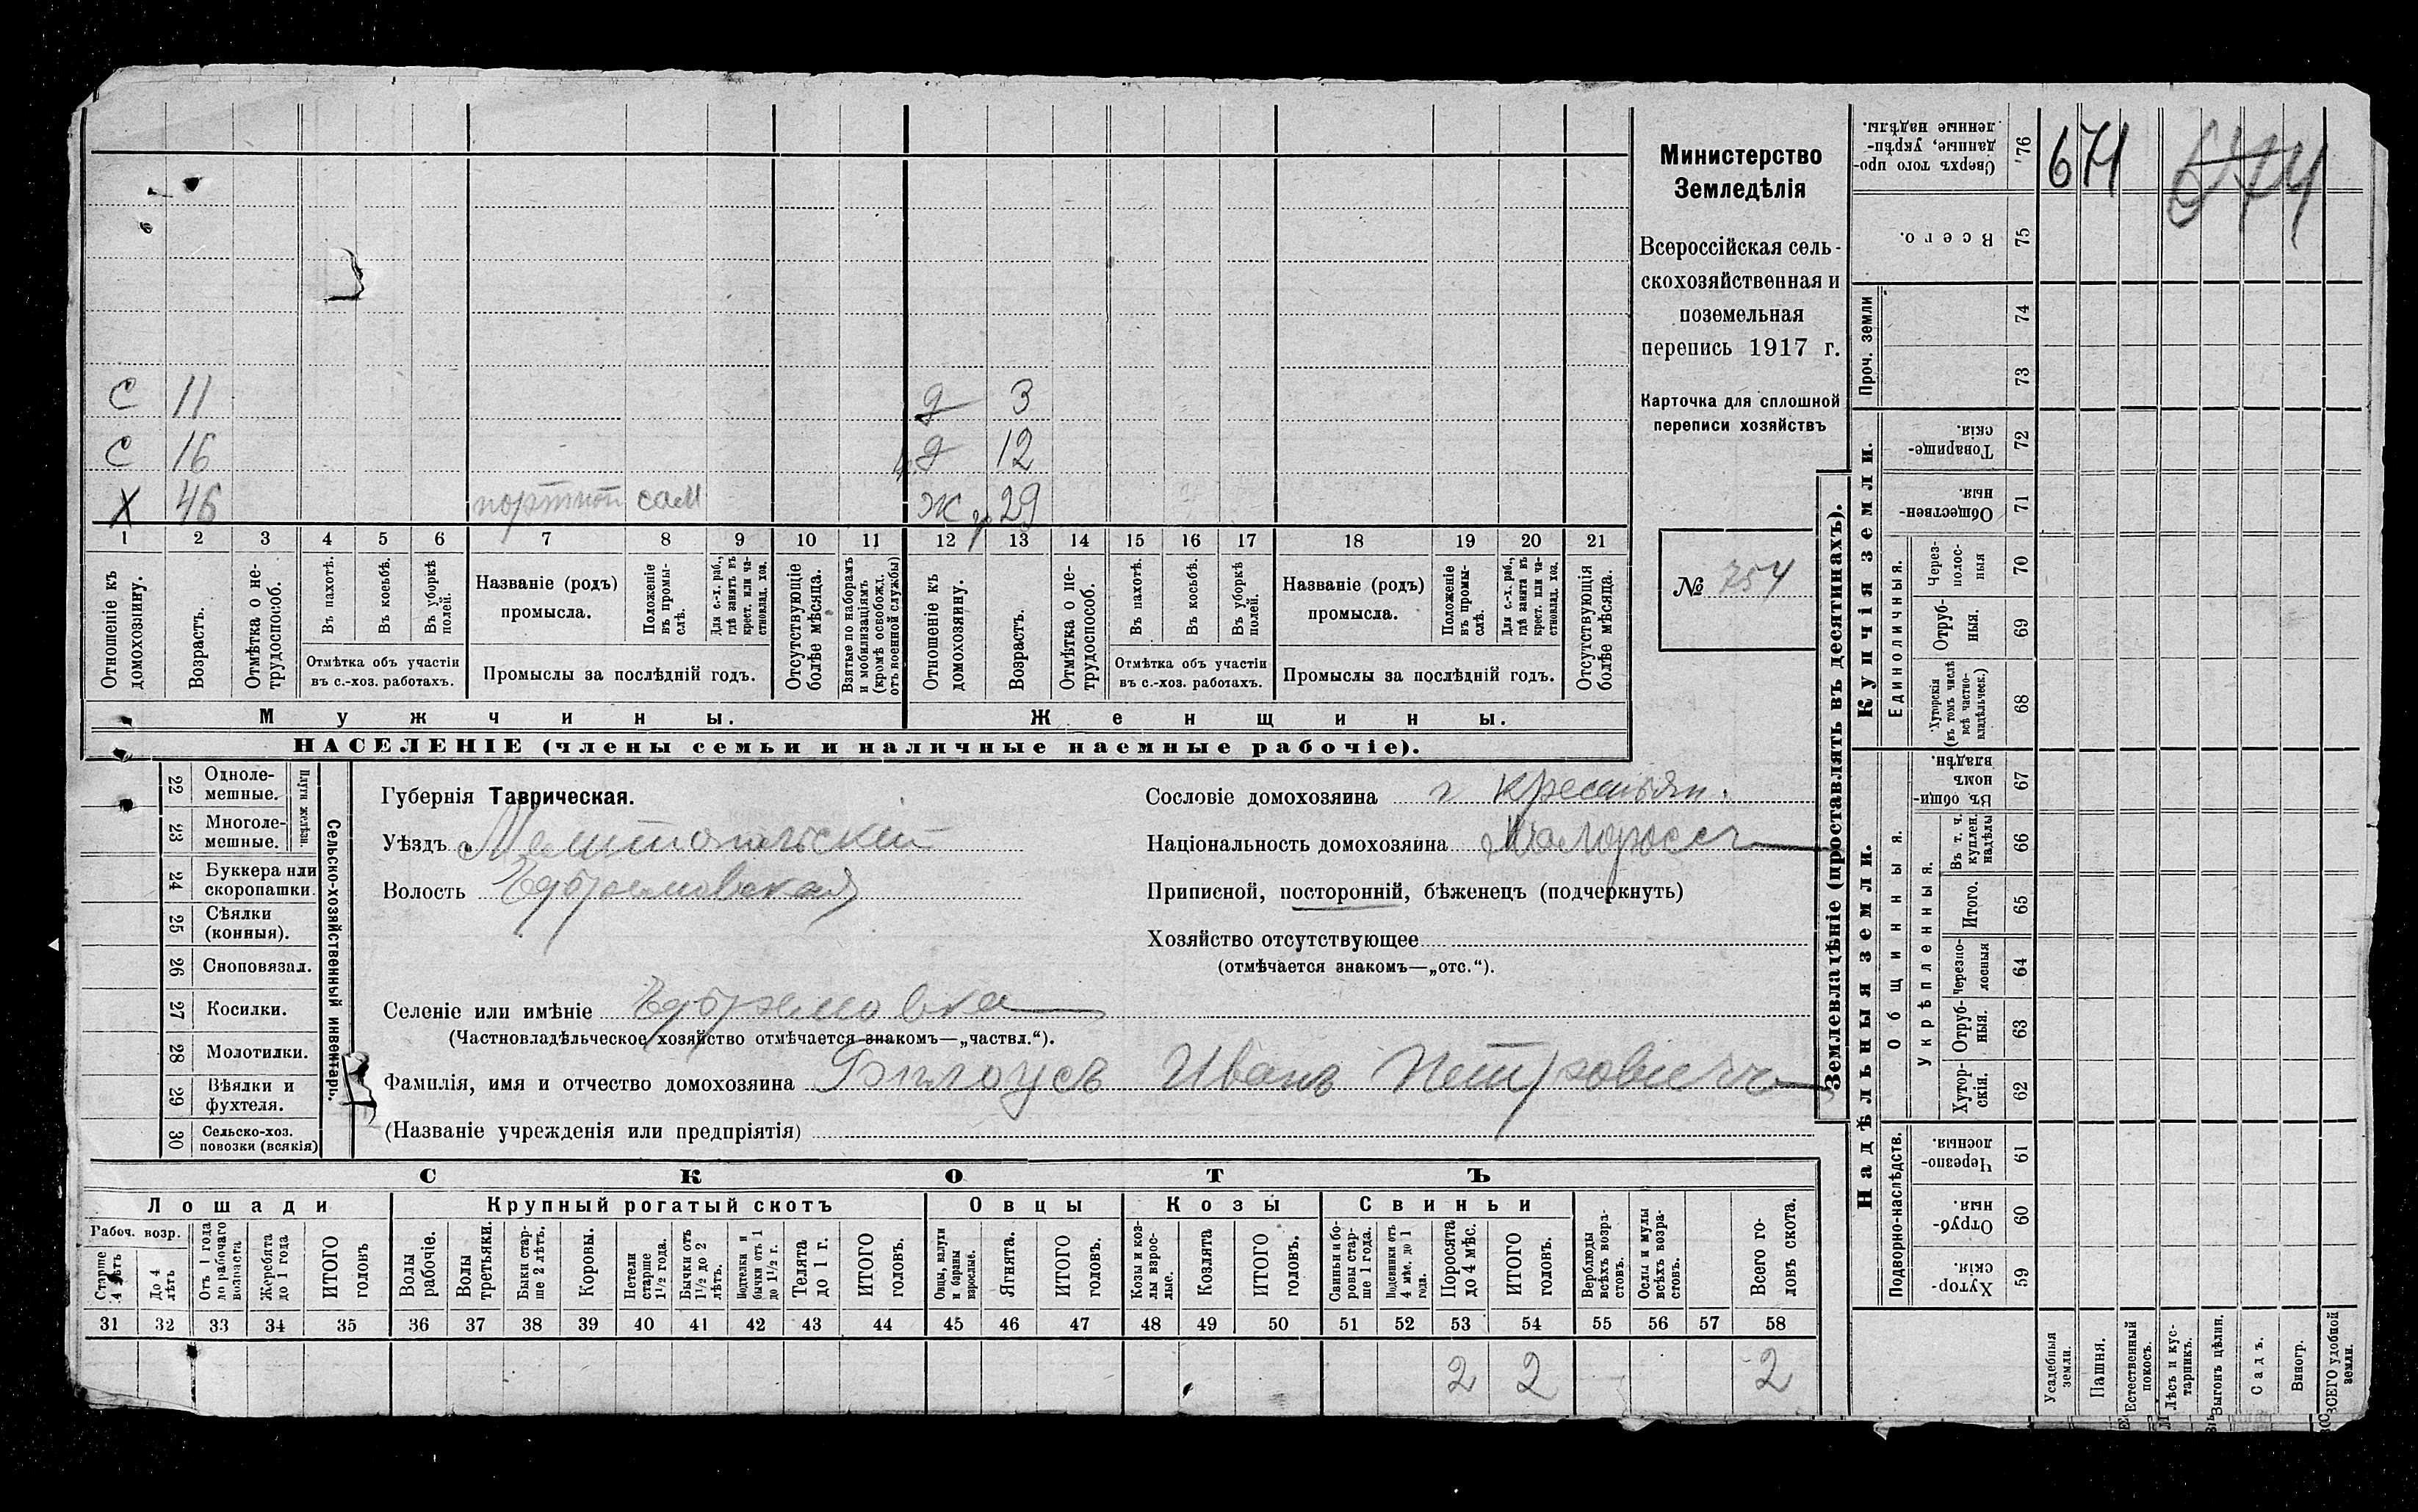 Министерство
Земледѣлія
Всероссійская сель-
скохозяйственная и
поземельная
перепись 1917 г.
Карточка для сплошной
переписи хозяйствъ
№ 754
С 11 д 3
С 16 д 12
Х 46 портной сам ж 29
1 2 3 4 5 6 7 8 9 10 11 12 13 14 15 16 17 18 19 20 21
Отношеніе къ домохозяину.
Возрастъ.
Отмѣтка о не-трудоспособ.
Въ пахотѣ.
Въ косьбѣ.
Въ уборкѣ полей.
Отмѣтка объ участіи
въ с.-хоз. работахъ.
Названіе (родъ)
промысла.
Положеніе въ промы-слѣ.
Для с.-х. раб., гдѣ занятъ въ крест. или ча-стновлад. хоз.
Промыслы за послѣдній годъ.
Отсутствующіе болѣе мѣсяца.
Взятые по наборамъ и мобилизаціямъ (кромѣ освобожд. отъ военной службы)
Отношеніе къ домохозяину.
Возрастъ.
Отмѣтка о не-трудоспособ.
Въ пахотѣ.
Въ косьбѣ.
Въ уборкѣ полей.
Отмѣтка объ участіи
въ с.-хоз. работахъ.
Названіе (родъ)
промысла.
Положеніе въ промы-слѣ.
Для с.-х. раб., гдѣ занята въ крест. или ча-стновлад. хоз.
Промыслы за послѣдній годъ.
Отсутствующія болѣе мѣсяца.
Мужчины. Женщины.
НАСЕЛЕНІЕ (члены семьи и наличные наемные рабочіе).
Сельско-хозяйственный инвентарь.
Плуги желѣзн.
22 Одноле-мешные.
23 Многоле-мешные.
24 Буккера или скоропашки.
25 Сѣялки (конныя).
26 Сноповязал.
27 Косилки.
28 Молотилки.
29 Вѣялки и фухтеля.
30 Сельско-хоз. повозки (всякія)
Губернія Таврическая.
Уѣздъ Мелитопольскій
Волость Ефремовская
Селеніе или имѣніе Ефремовка
(Частновладѣльческое хозяйство отмѣчается знакомъ—„частвл.“).
Фамилія, имя и отчество домохозяина Билоусъ Иванъ Петровичъ
(Названіе учрежденія или предпріятія)
Сословіе домохозяина крестьян.
Національность домохозяина Малороссъ
Приписной, посторонній, бѣженецъ (подчеркнуть)
Хозяйство отсутствующее
(отмѣчается знакомъ—„отс.“).
СКОТЪ
Лошади Крупный рогатый скотъ Овцы Козы Свиньи
Рабоч. возр.
Старше 4 лѣтъ
До 4 лѣтъ
Отъ 1 года до рабочаго возраста
Жеребята до 1 года
ИТОГО головъ
Волы рабочіе.
Волы третьяки.
Быки стар-ше 2 лѣтъ.
Коровы.
Нетели старше 1½ года.
Бычки отъ 1½ до 2 лѣтъ.
Подтелки и бычки отъ 1 до 1½ г.
Телята до 1 г.
ИТОГО головъ.
Овцы, валухи и бараны взрослые.
Ягнята.
ИТОГО головъ.
Козы и коз-лы взрос-лые.
Козлята
ИТОГО головъ.
Свиньи и бо-ровы стар-ше 1 года.
Подсвинки отъ 4 мѣс. до 1 года.
Поросята до 4 мѣс.
ИТОГО головъ.
Верблюды всѣхъ возра-стовъ.
Ослы и мулы всѣхъ возра-стовъ.
Всего го-ловъ скота.
31 32 33 34 35 36 37 38 39 40 41 42 43 44 45 46 47 48 49 50 51 52 53 54 55 56 57 58
2 2 2
Землевладѣніе (проставлять въ десятинахъ).
Надѣльныя земли. Купчія земли. Проч. земли
Сверхъ того про-данные, укрѣп-ленные надѣлы. 76
671 674
Всего. 75
74
73
Товарище-скія. 72
Обществен-ныя. 71
Единоличныя.
Через-полос-ныя 70
Отруб-ныя. 69
Хуторскія (въ томъ числѣ всѣ частно-владѣльческ.) 68
Общинныя.
Въ общи-номъ владѣн. 67
Укрѣпленныя.
Въ т. ч. куплен. надѣлы 66
Итого. 65
Черезпо-лосныя 64
Отруб-ныя. 63
Хутор-скія. 62
Подворно-наслѣдств.
Черезпо-лосныя. 61
Отруб-ныя. 60
Хутор-скія. 59
Усадебныя земли.
Пашня.
Естественный покосъ.
Лѣсъ и кус-тарникъ.
Выгонъ цѣлин.
Садъ.
Виногр.
ВСЕГО удобной земли.